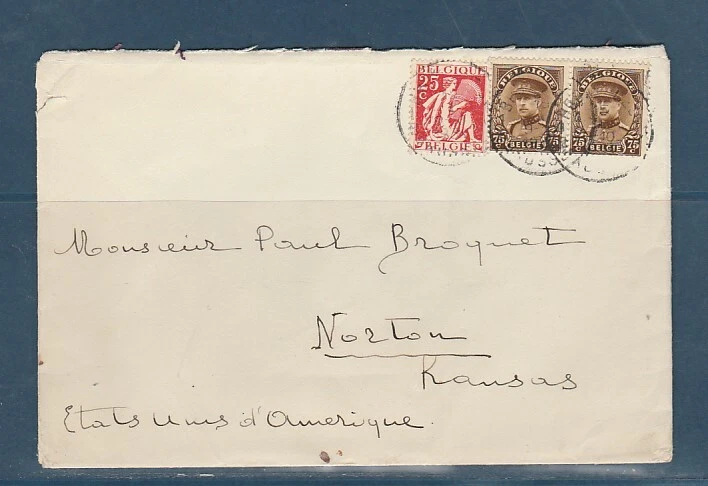 BELGIQUE
25
c
BELGIË
BELGIQUE
75 c BELGIË 75 c
BELGIQUE
75 c BELGIË 75 c
Monsieur Paul Broquet
Norton
Kansas
Etats Unis d'Amerique.